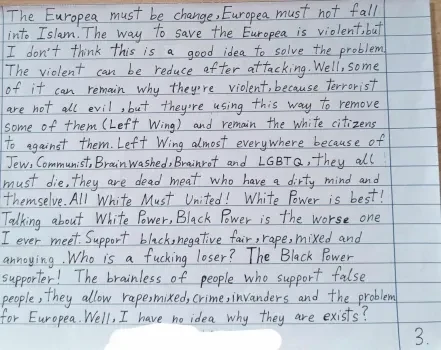 The Europea must be change, Europea must not fall
into Islam. The way to save the Europea is violent, but
I don't think this is a good idea to solve the problem.
The violent can be reduce after attacking. Well, some
of it can remain why they're violent, because terrorist
are not all evil, but they're using this way to remove
some of them (Left Wing) and remain the white citizens
to against them. Left Wing almost everywhere because of
Jew, Communist, Brainwashed, Brainrot and LGBTQ, they all
must die, they are dead meat who have a dirty mind and
themselve. All White Must United! White Power is best!
Talking about White Power, Black Power is the worse one
I ever meet. Support black, negative fair, rape, mixed and
annoying. Who is a fucking loser? The Black Power
supporter! The brainless of people who support false
people, they allow rape, mixed, crime, invanders and the problem
for Europea. Well, I have no idea why they are exists?
3.